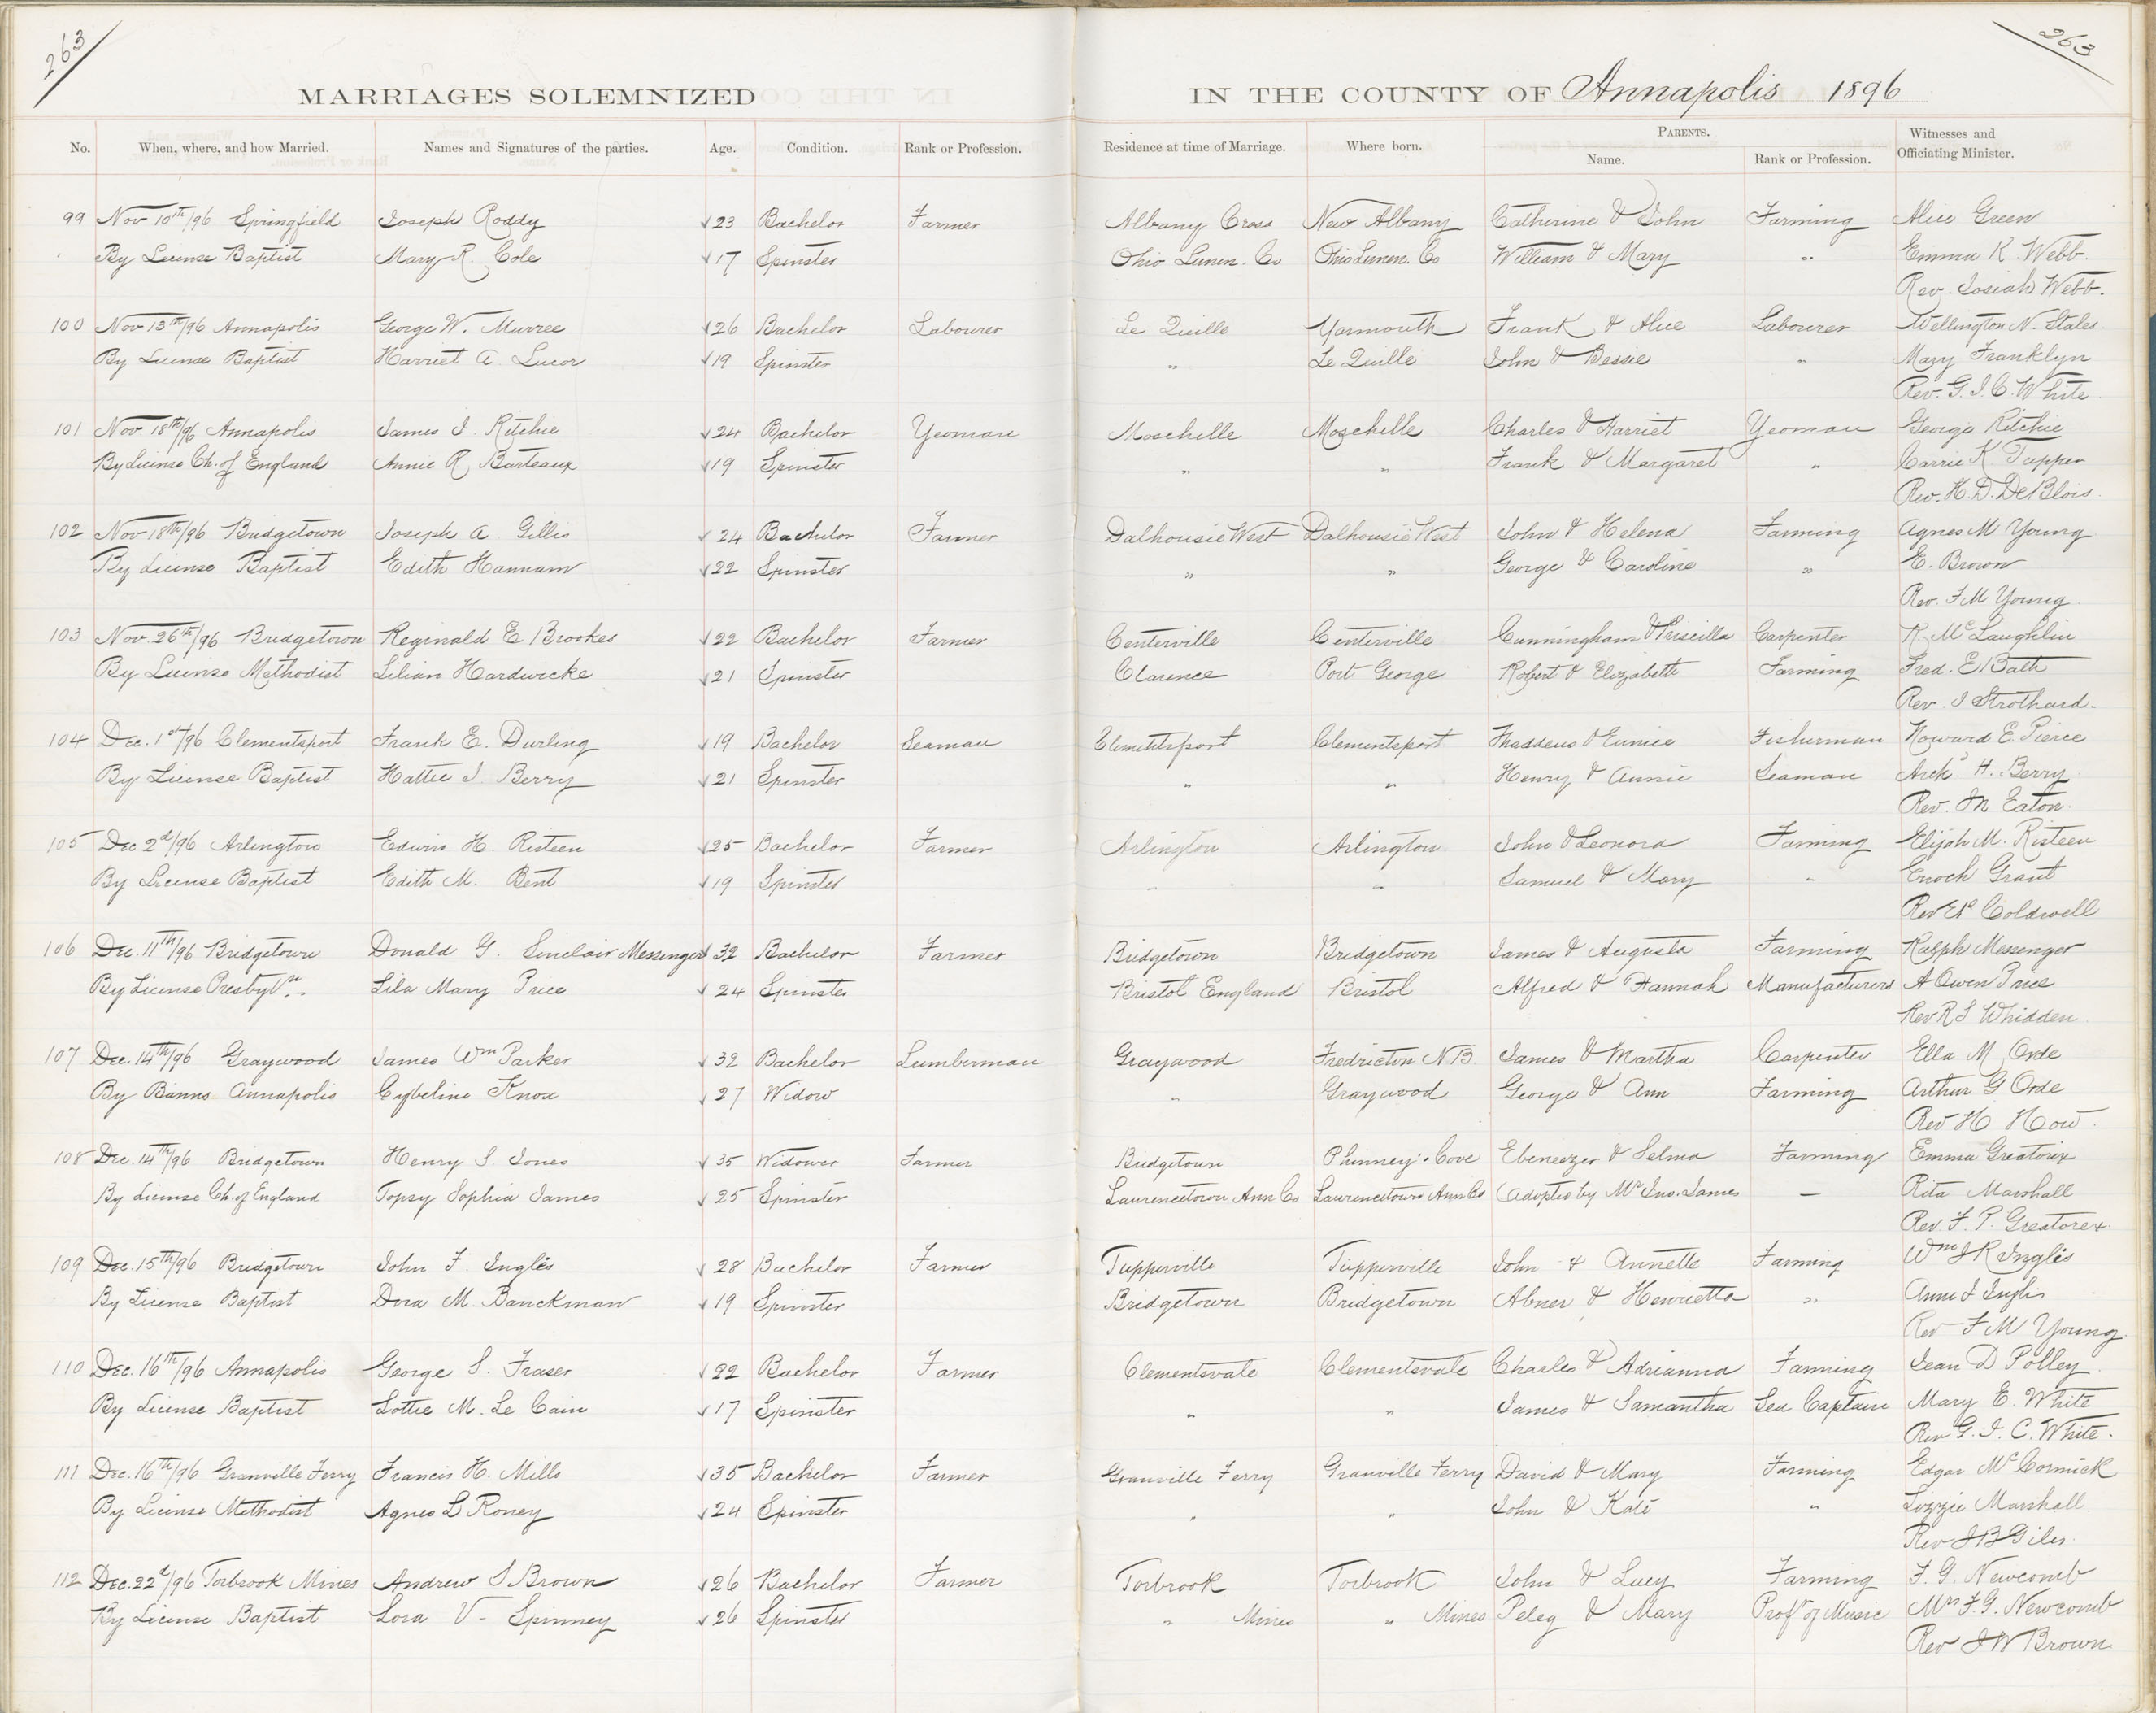 263
263
MARRIAGES SOLEMNIZED IN THE COUNTY OF Annapolis 1896
No. When, where, and how Married. Names and Signatures of the parties. Age. Condition. Rank or Profession. Residence at time of Marriage. Where born. PARENTS. Name. Rank or Profession. Witnesses and Officiating Minister.
99 Nov 10th/96 Springfield Joseph Roddy 23 Bachelor Farmer Albany Cross New Albany Catherine & John Farming Alice Green
By License Baptist Mary R. Cole 17 Spinster Ohio Lunen. Co Ohio Lunen. Co William & Mary " Emma K. Webb.
Rev. Josiah Webb.
100 Nov 13th/96 Annapolis George W. Murree 26 Bachelor Labourer Le Quille Yarmouth Frank & Alice Labourer Wellington N. Stales
By License Baptist Harriet A. Lucor 19 Spinster " Le Quille John & Bessie " Mary Franklyn
Rev. G. J. C. White
101 Nov. 18th/96 Annapolis James J. Ritchie 24 Bachelor Yeoman Moschelle Moschelle Charles & Harriet Yeoman George Ritchie
By License Ch. of England Annie R. Barteaux 19 Spinster " " Frank & Margaret " Carrie K. Tupper
Rev. H. D. DeBlois.
102 Nov 18th/96 Bridgetown Joseph A. Gillis 24 Bachelor Farmer Dalhousie West Dalhousie West John & Helena Farming Agnes M Young
By License Baptist Edith Hannam 22 Spinster " " George & Caroline " E. Brown
Rev. F M Young.
103 Nov. 26th/96 Bridgetown Reginald E Brookes 22 Bachelor Farmer Centerville Centerville Cunningham & Priscilla Carpenter R. McLaughlin
By License Methodist Lilian Hardwicke 21 Spinster Clarence Port George Robert & Elizabeth Farming Fred. E Bath
Rev. J Strothard.
104 Dec. 1st/96 Clementsport Frank E. Durling 19 Bachelor Seaman Clementsport Clementsport Thaddeus & Eunice Fisherman Howard E. Pierce
By License Baptist Hattie J. Berry 21 Spinster " " Henry & Annie Seaman Archd H. Berry
Rev. I M Eaton.
105 Dec 2d/96 Arlington Edwin H. Risteen 25 Bachelor Farmer Arlington Arlington John & Leonora Farming Elijah M. Risteen
By License Baptist Edith M. Bent 19 Spinster " " Samuel & Mary " Enoch Grant
Rev Coldwell
106 Dec. 11th/96 Bridgetown Donald G. Sinclair Messenger 32 Bachelor Farmer Bridgetown Bridgetown James & Augusta Farming Ralph Messenger
By License Presbytn. Lila Mary Price 24 Spinster Bristol England Bristol Alfred & Hannah Manufacturers A Owen Price
Rev R S Whidden
107 Dec. 14th/96 Graywood James Wm Parker 32 Bachelor Lumberman Graywood Fredricton N B James & Martha Carpenter Ella M Orde
By Banns Annapolis Cybeline Knox 27 Widow " Graywood George & Ann Farming Arthur G Orde
Rev H How.
108 Dec. 14th/96 Bridgetown Henry S. Jones 35 Widower Farmer Bridgetown Phinney's Cove Ebeneezer & Selma Farming Emma Greatorix
By License Ch. of England Topsy Sophia James 25 Spinster Laurencetown Ann Co Laurencetown Ann Co (Adoptio by Mr Jno. James — Rita Marshall
Rev. F. P. Greatorex.
109 Dec. 15th/96 Bridgetown John F. Inglis 28 Bachelor Farmer Tupperville Tupperville John & Annette Farming Wm J R Inglis
By License Baptist Dora M. Banckman 19 Spinster Bridgetown Bridgetown Abner & Henrietta " Annie J Inglis
Rev F M Young
110 Dec. 16th/96 Annapolis George S. Fraser 22 Bachelor Farmer Clementsvale Clementsvale Charles & Adrianna Farming Jean D Polley
By License Baptist Lottie M. Le Cain 17 Spinster " " James & Samantha Sea Captain Mary E. White
Rev G. J. C. White.
111 Dec. 16th/96 Granville Ferry Francis H. Mills 35 Bachelor Farmer Granville Ferry Granville Ferry David & Mary Farming Edgar McCormick
By License Methodist Agnes L Roney 24 Spinster " " John & Kate " Lizzie Marshall
Rev J B Giles.
112 Dec. 22d/96 Torbrook Mines Andrew S Brown 26 Bachelor Farmer Torbrook Torbrook John & Lucy Farming F. G. Newcomb
By License Baptist Lora V- Spinney 26 Spinster " Mines " Mines Peleg & Mary Profr of Music Mrs F. G. Newcomb
Rev J W Brown